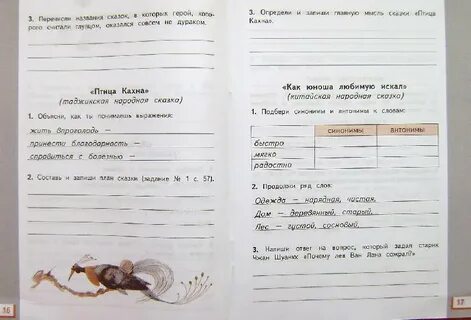 3. Перечисли названия сказок, в которых герой, кого-
рого считали глупцом, оказался совсем не дураком.
«Птица Кахна»
(таджикская народная сказка)
1. Объясни, как ты понимаешь выражения:
жить впроголодь —
принести благодарность —
справиться с болезнью —
2. Составь и запиши план сказки (задание № 1 с. 57).
16
3. Определи и запиши главную мысль сказки «Птица
Кахна».
«Как юноша любимую искал»
(китайская народная сказка)
1. Подбери синонимы и антонимы к словам:
синонимы антонимы
быстро
мягко
радостно
2. Продолжи ряд слов:
Одежда — нарядная, чистая,
Дом — деревянный, старый,
Лес — густой, сосновый,
3. Напиши ответ на вопрос, который задал старик
Чжан Шуаню: «Почему лев Ван Лана сожрал?»
17